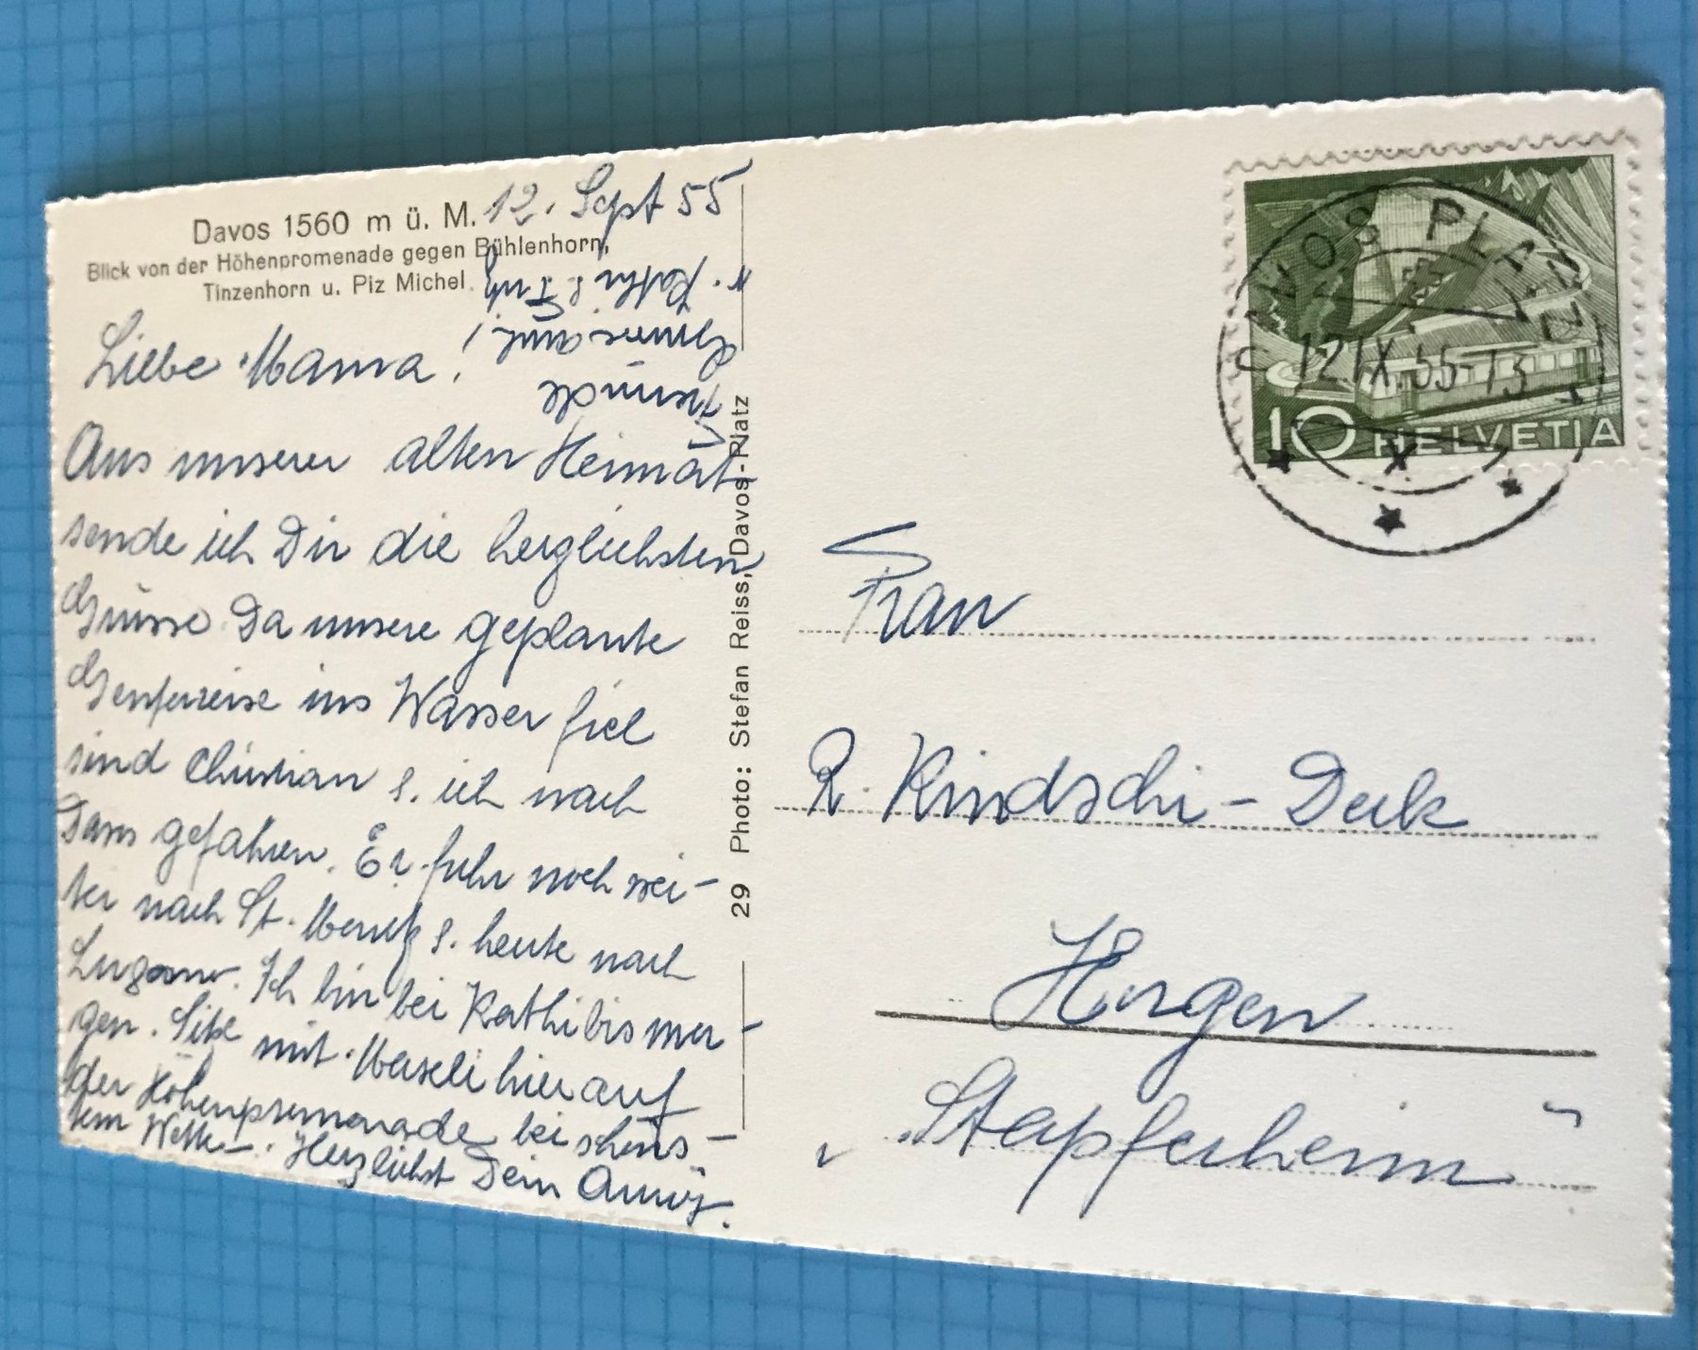 Davos 1560 m ü. M.
12. Sept 55
Blick von der Höhenpromenade gegen Bühlenhorn,
Tinzenhorn u. Piz Michel.
Liebe Mama!
Aus unserer alten Heimat
sende ich Dir die herzlichsten
Grüsse. Da unsere geplante
Genferreise ins Wasser fiel
sind Christian & ich nach
Davos gefahren. Er fuhr noch wei-
ter nach St. Moritz & heute nach
Lugano. Ich bin bei Kathi bis mor-
gen. Sitze mit hier auf
der Höhenpromenade bei schöns-
tem Wetter. Herzlichst Dein
Freunde
29 Photo: Stefan Reiss, Davos-Platz
DAVOS PLATZ
12.IX.55-13
10 HELVETIA
Frau
R. Kindschi-
Horgen
"Stapferheim"